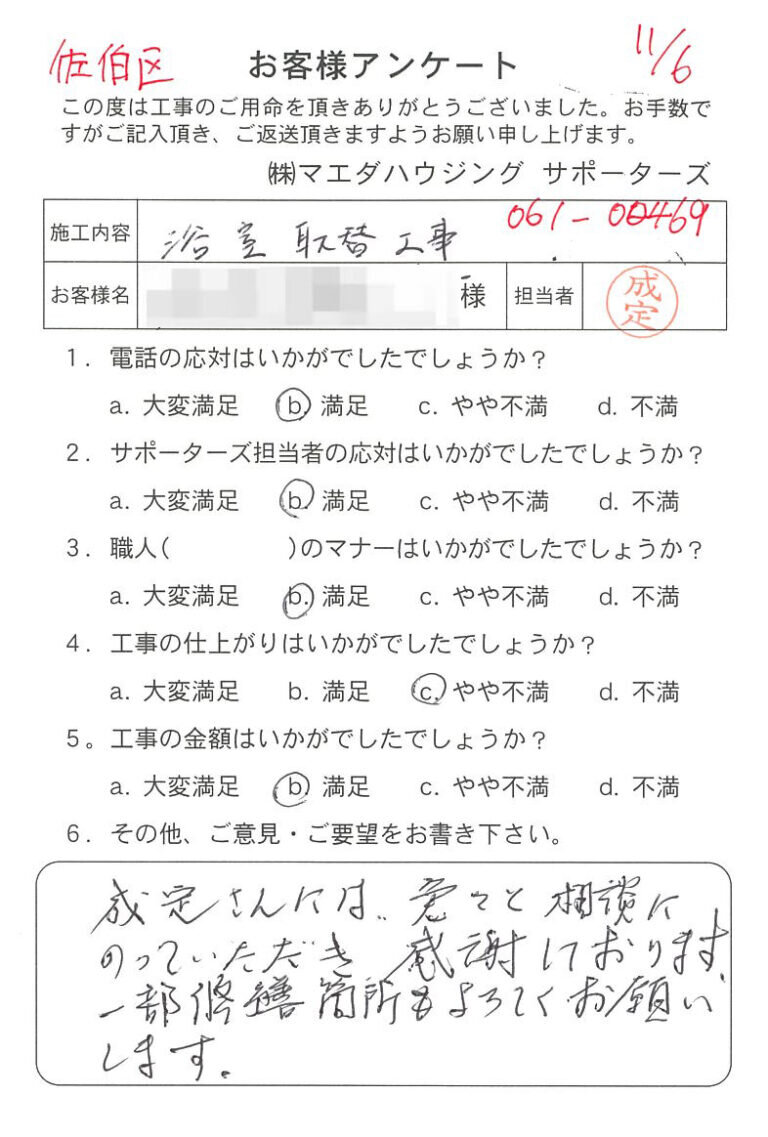 佐伯区 お客様アンケート 11/6
この度は工事のご用命を頂きありがとうございました。お手数で
すがご記入頂き、ご返送頂きますようお願い申し上げます。
㈱マエダハウジング サポーターズ
施工内容 浴室取替工事 061-00469
お客様名 様 担当者 成定
1. 電話の応対はいかがでしたでしょうか?
a. 大変満足 b. 満足 c. やや不満 d. 不満
2. サポーターズ担当者の応対はいかがでしたでしょうか?
a. 大変満足 b. 満足 c. やや不満 d. 不満
3. 職人( )のマナーはいかがでしたでしょうか?
a. 大変満足 b. 満足 c. やや不満 d. 不満
4. 工事の仕上がりはいかがでしたでしょうか?
a. 大変満足 b. 満足 c. やや不満 d. 不満
5。工事の金額はいかがでしたでしょうか?
a. 大変満足 b. 満足 c. やや不満 d. 不満
6. その他、ご意見・ご要望をお書き下さい。
成定さんには、色々と相談に
のっていただき感謝しております。
一部修繕箇所もよろしくお願い
します。